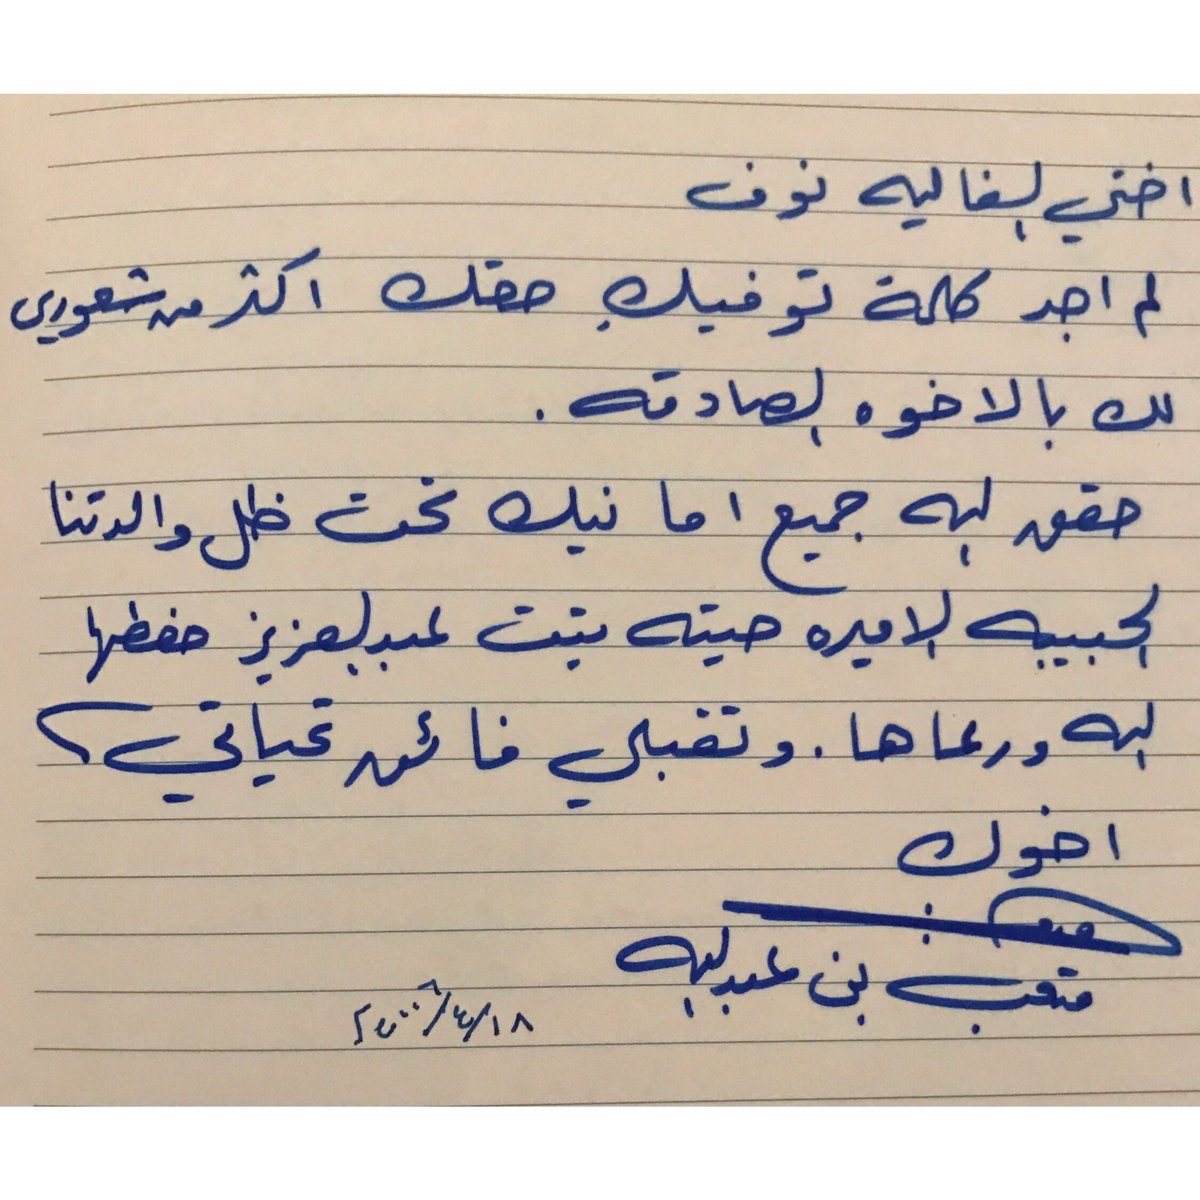 اختي الغاليه نوف
لم اجد كلمة توفيك حقك اكثر من شعوري
لك بالاخوه الصادقه .
حقق الله جميع امانيك تحت ظل والدتنا
الحبيبه الاميره حيته بنت عبدالعزيز حفظها
الله ورعاها . وتقبلي فائق تحياتي
اخوك
متعب بن عبدالله